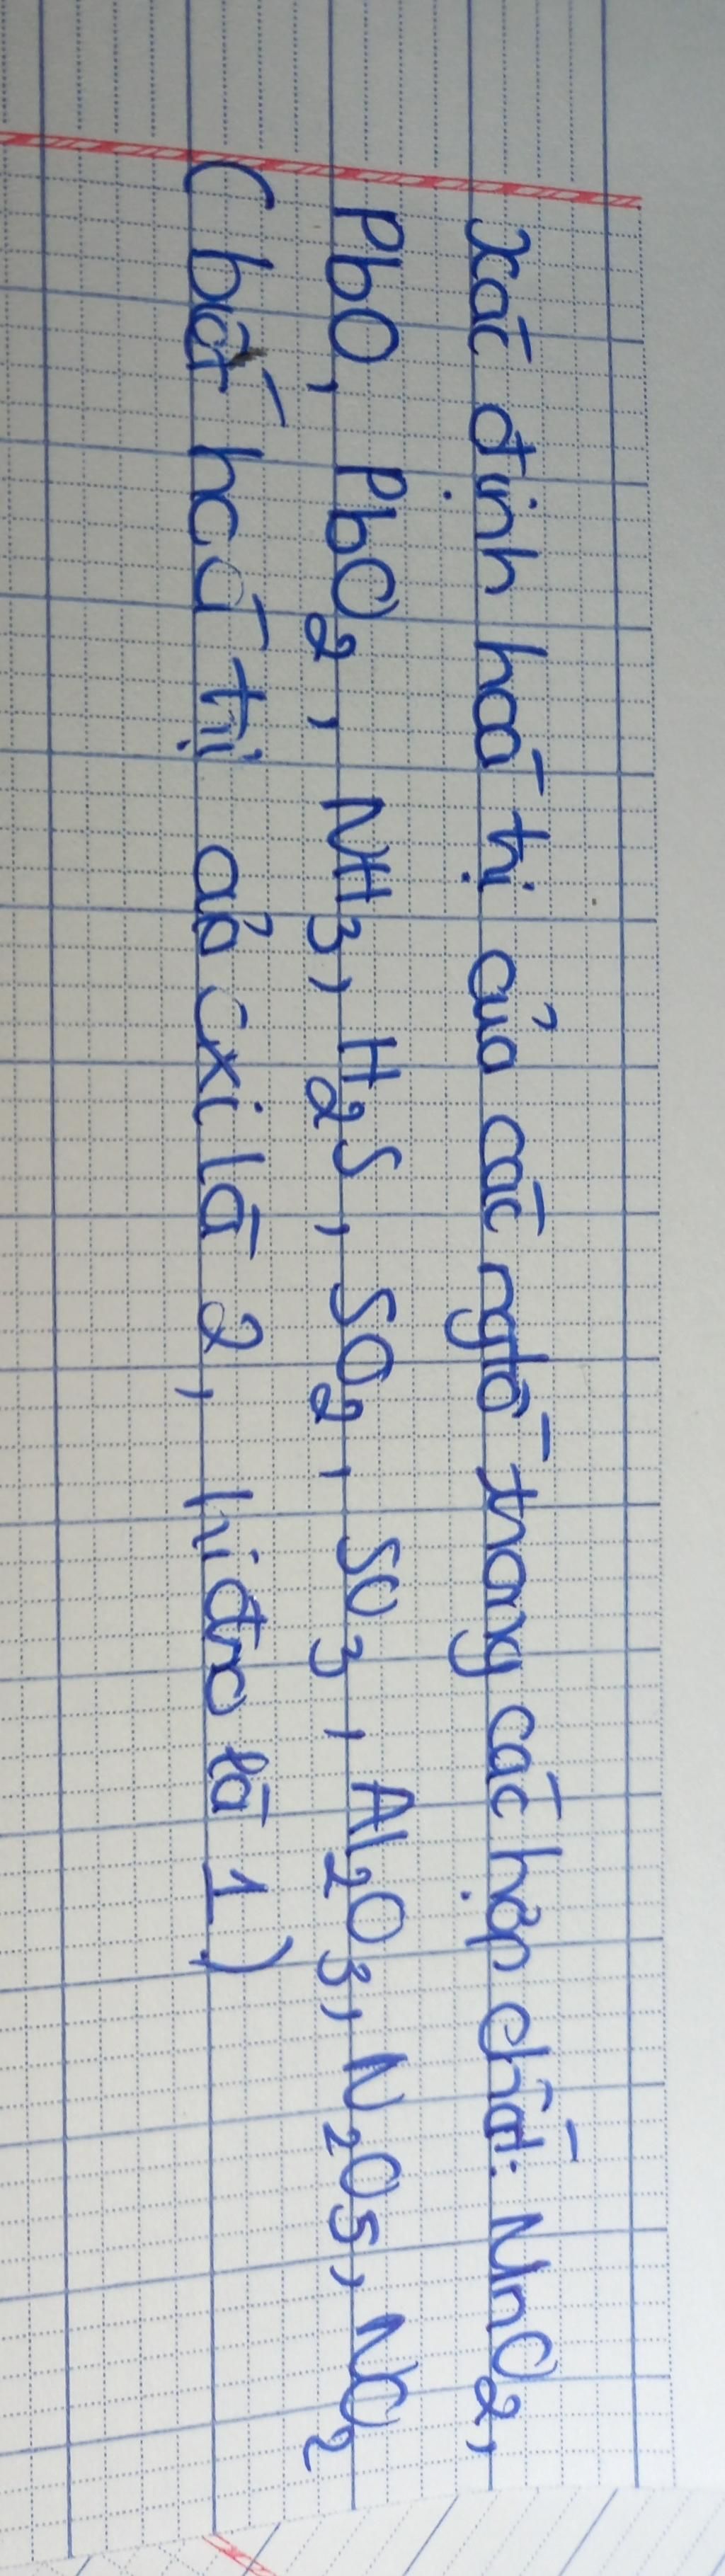 xác định hoá trị của các ngtố trong các hợp chất: MnO2,
PbO, PbO2, NH3, H2S, SO2, SO3, Al2O3, N2O5, NO2
( biết hoá trị của oxi là 2, hiđro là 1)